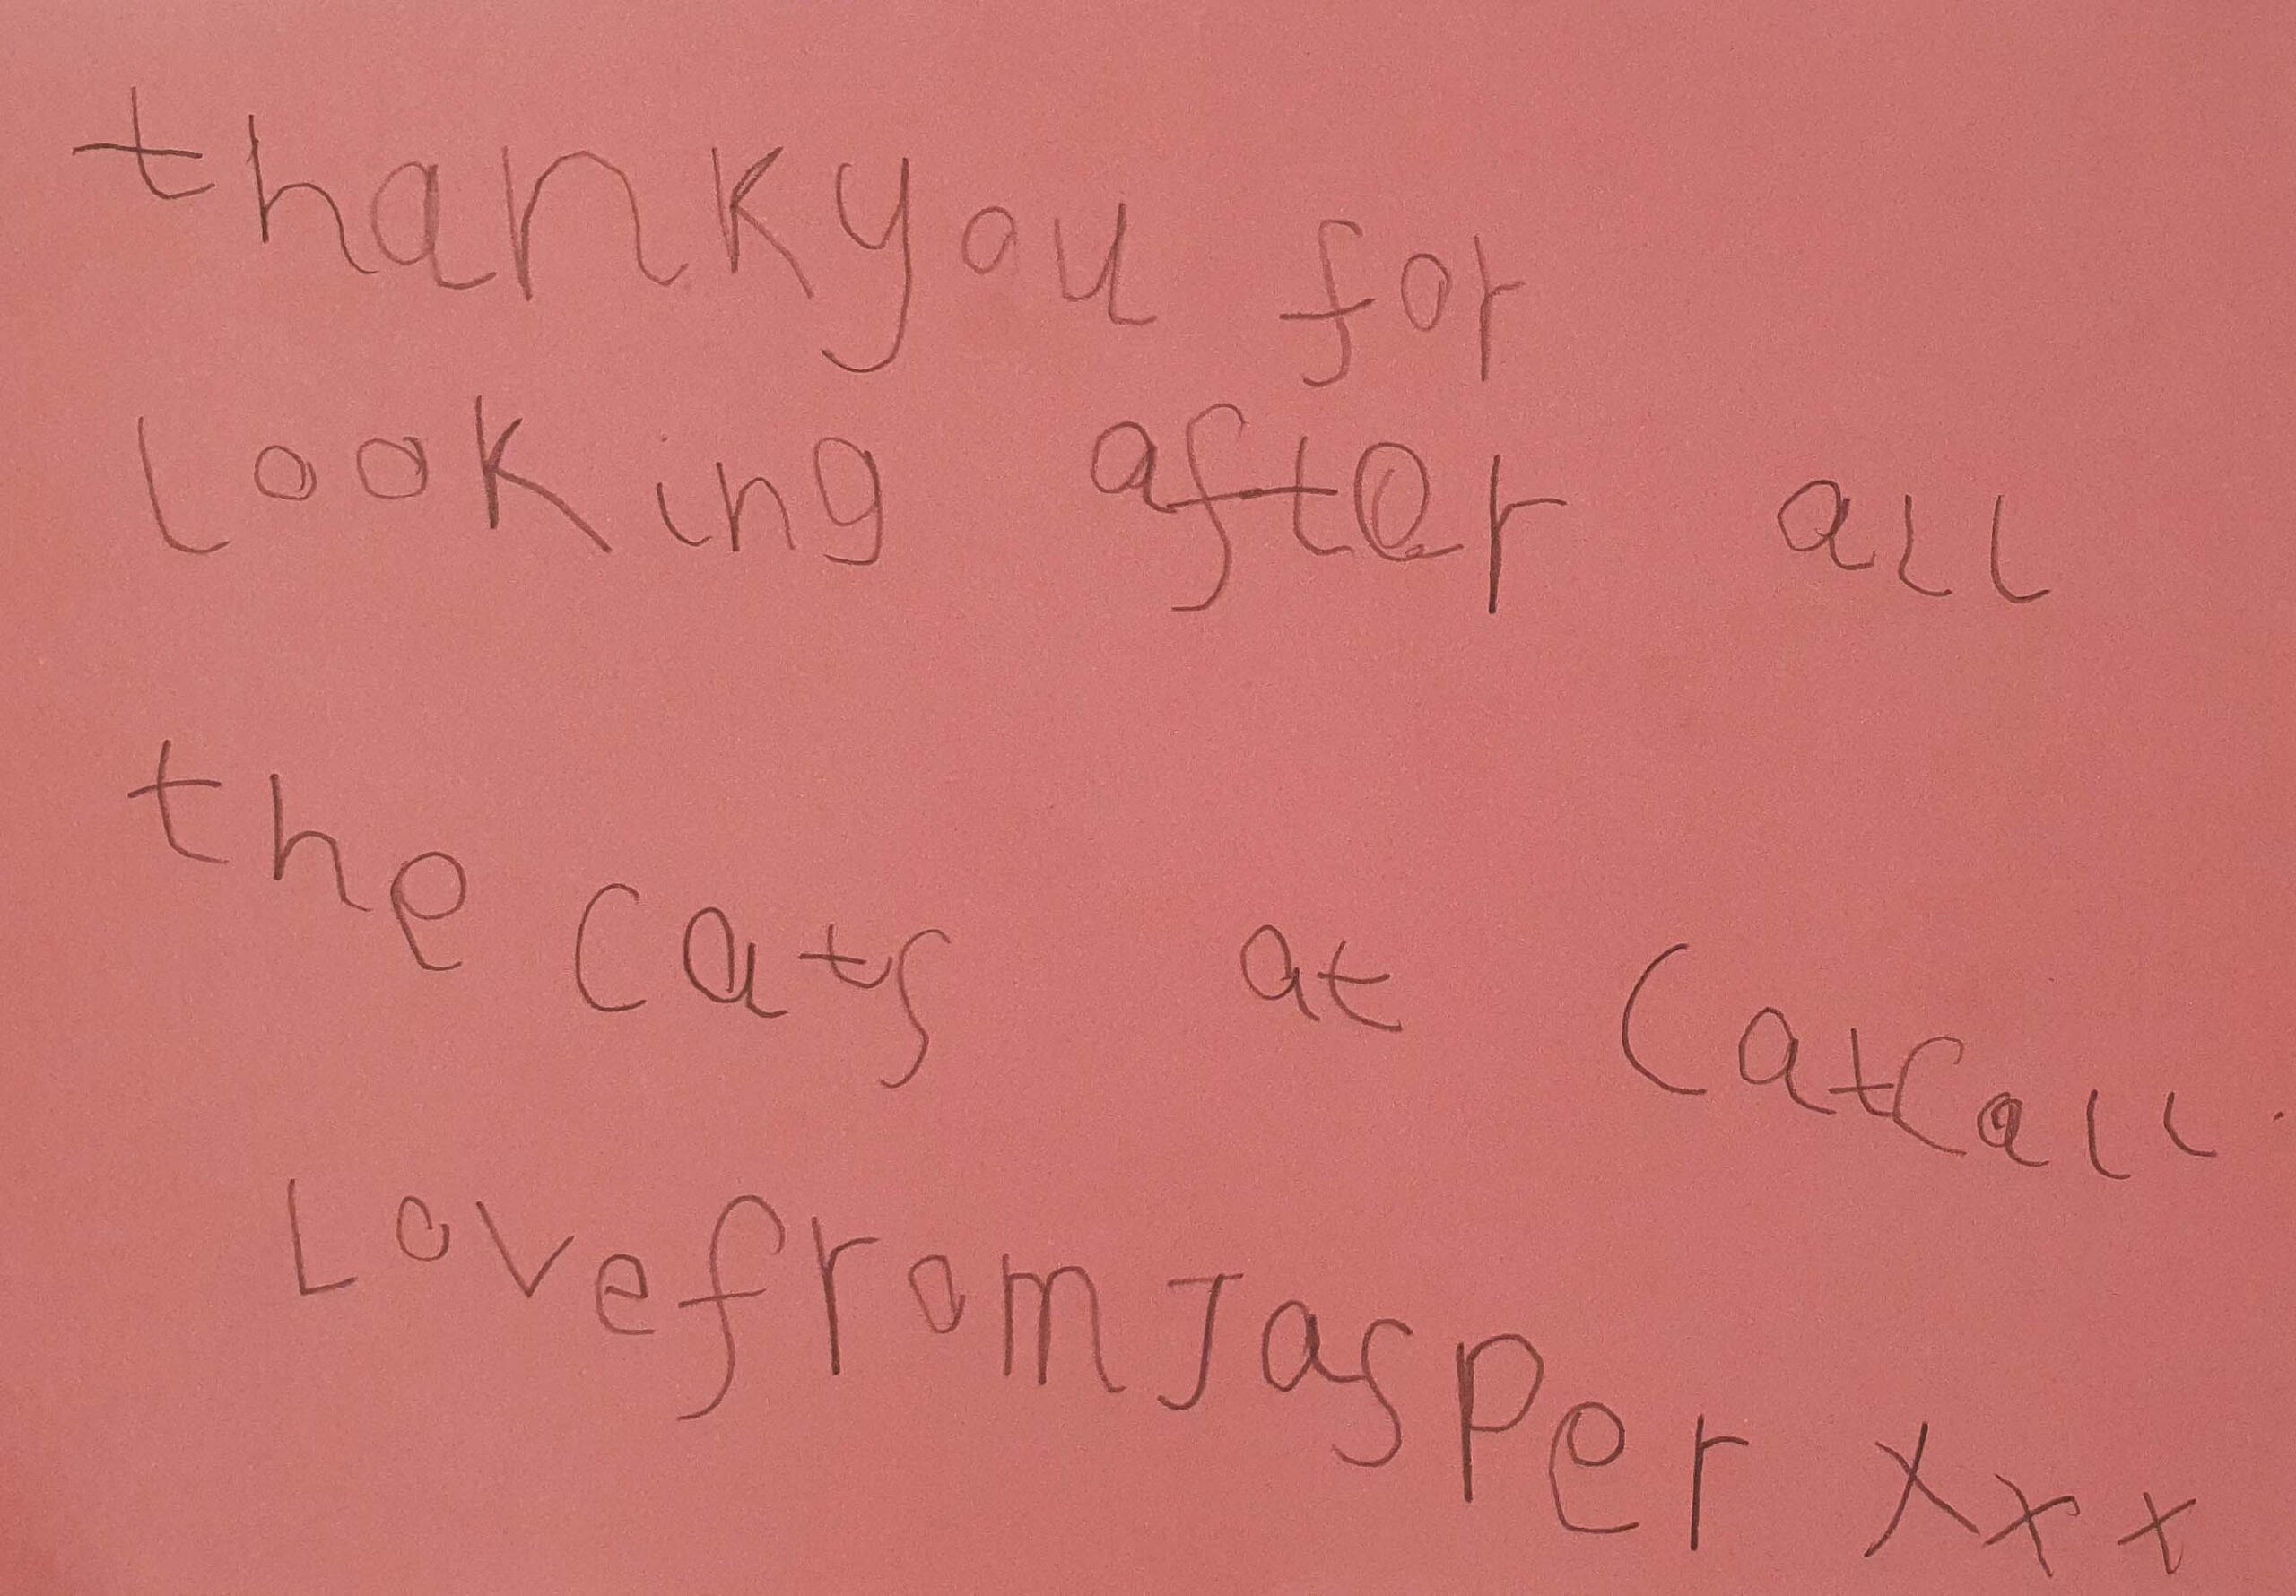 thankyou for
looking after all
the cats at Catcall.
Love from Jasper xxx